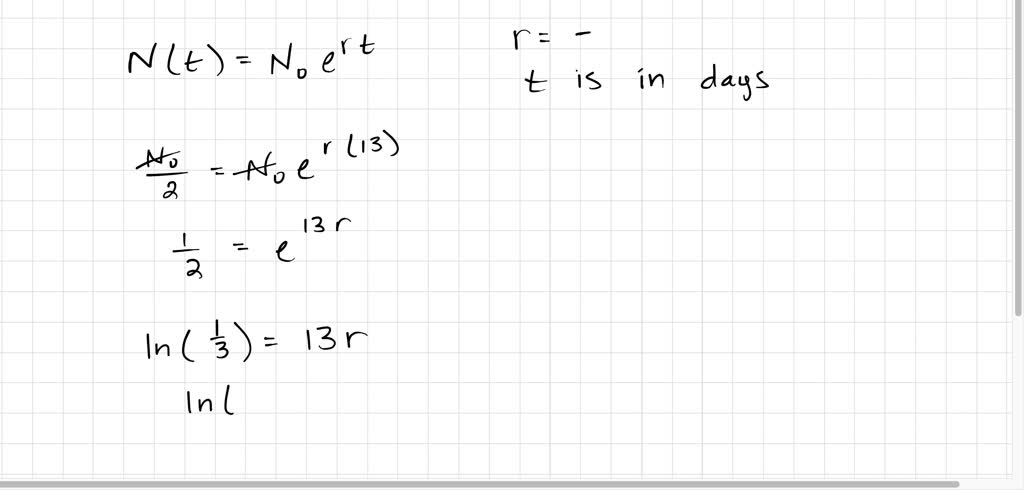 N(t) = N₀ e^{rt}
r = -
t is in days
N₀/2 = N₀ e^{r(13)}
1/2 = e^{13r}
ln(1/3) = 13r
ln(